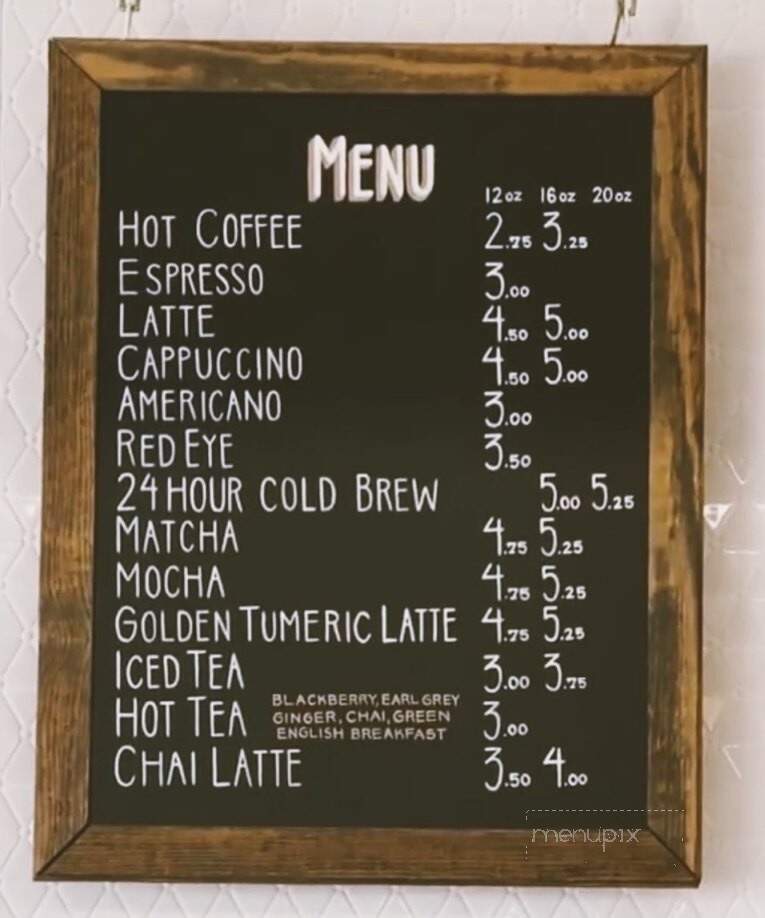 MENU
12oz 16oz 20oz
HOT COFFEE 2.75 3.25
ESPRESSO 3.00
LATTE 4.50 5.00
CAPPUCCINO 4.50 5.00
AMERICANO 3.00
RED EYE 3.50
24 HOUR COLD BREW 5.00 5.25
MATCHA 4.75 5.25
MOCHA 4.75 5.25
GOLDEN TUMERIC LATTE 4.75 5.25
ICED TEA 3.00 3.75
HOT TEA 3.00
BLACKBERRY, EARL GREY
GINGER, CHAI, GREEN
ENGLISH BREAKFAST
CHAI LATTE 3.50 4.00
menupix